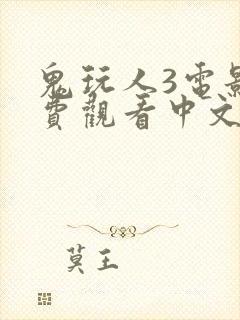 鬼玩人3電影
費觀看中文
莫王